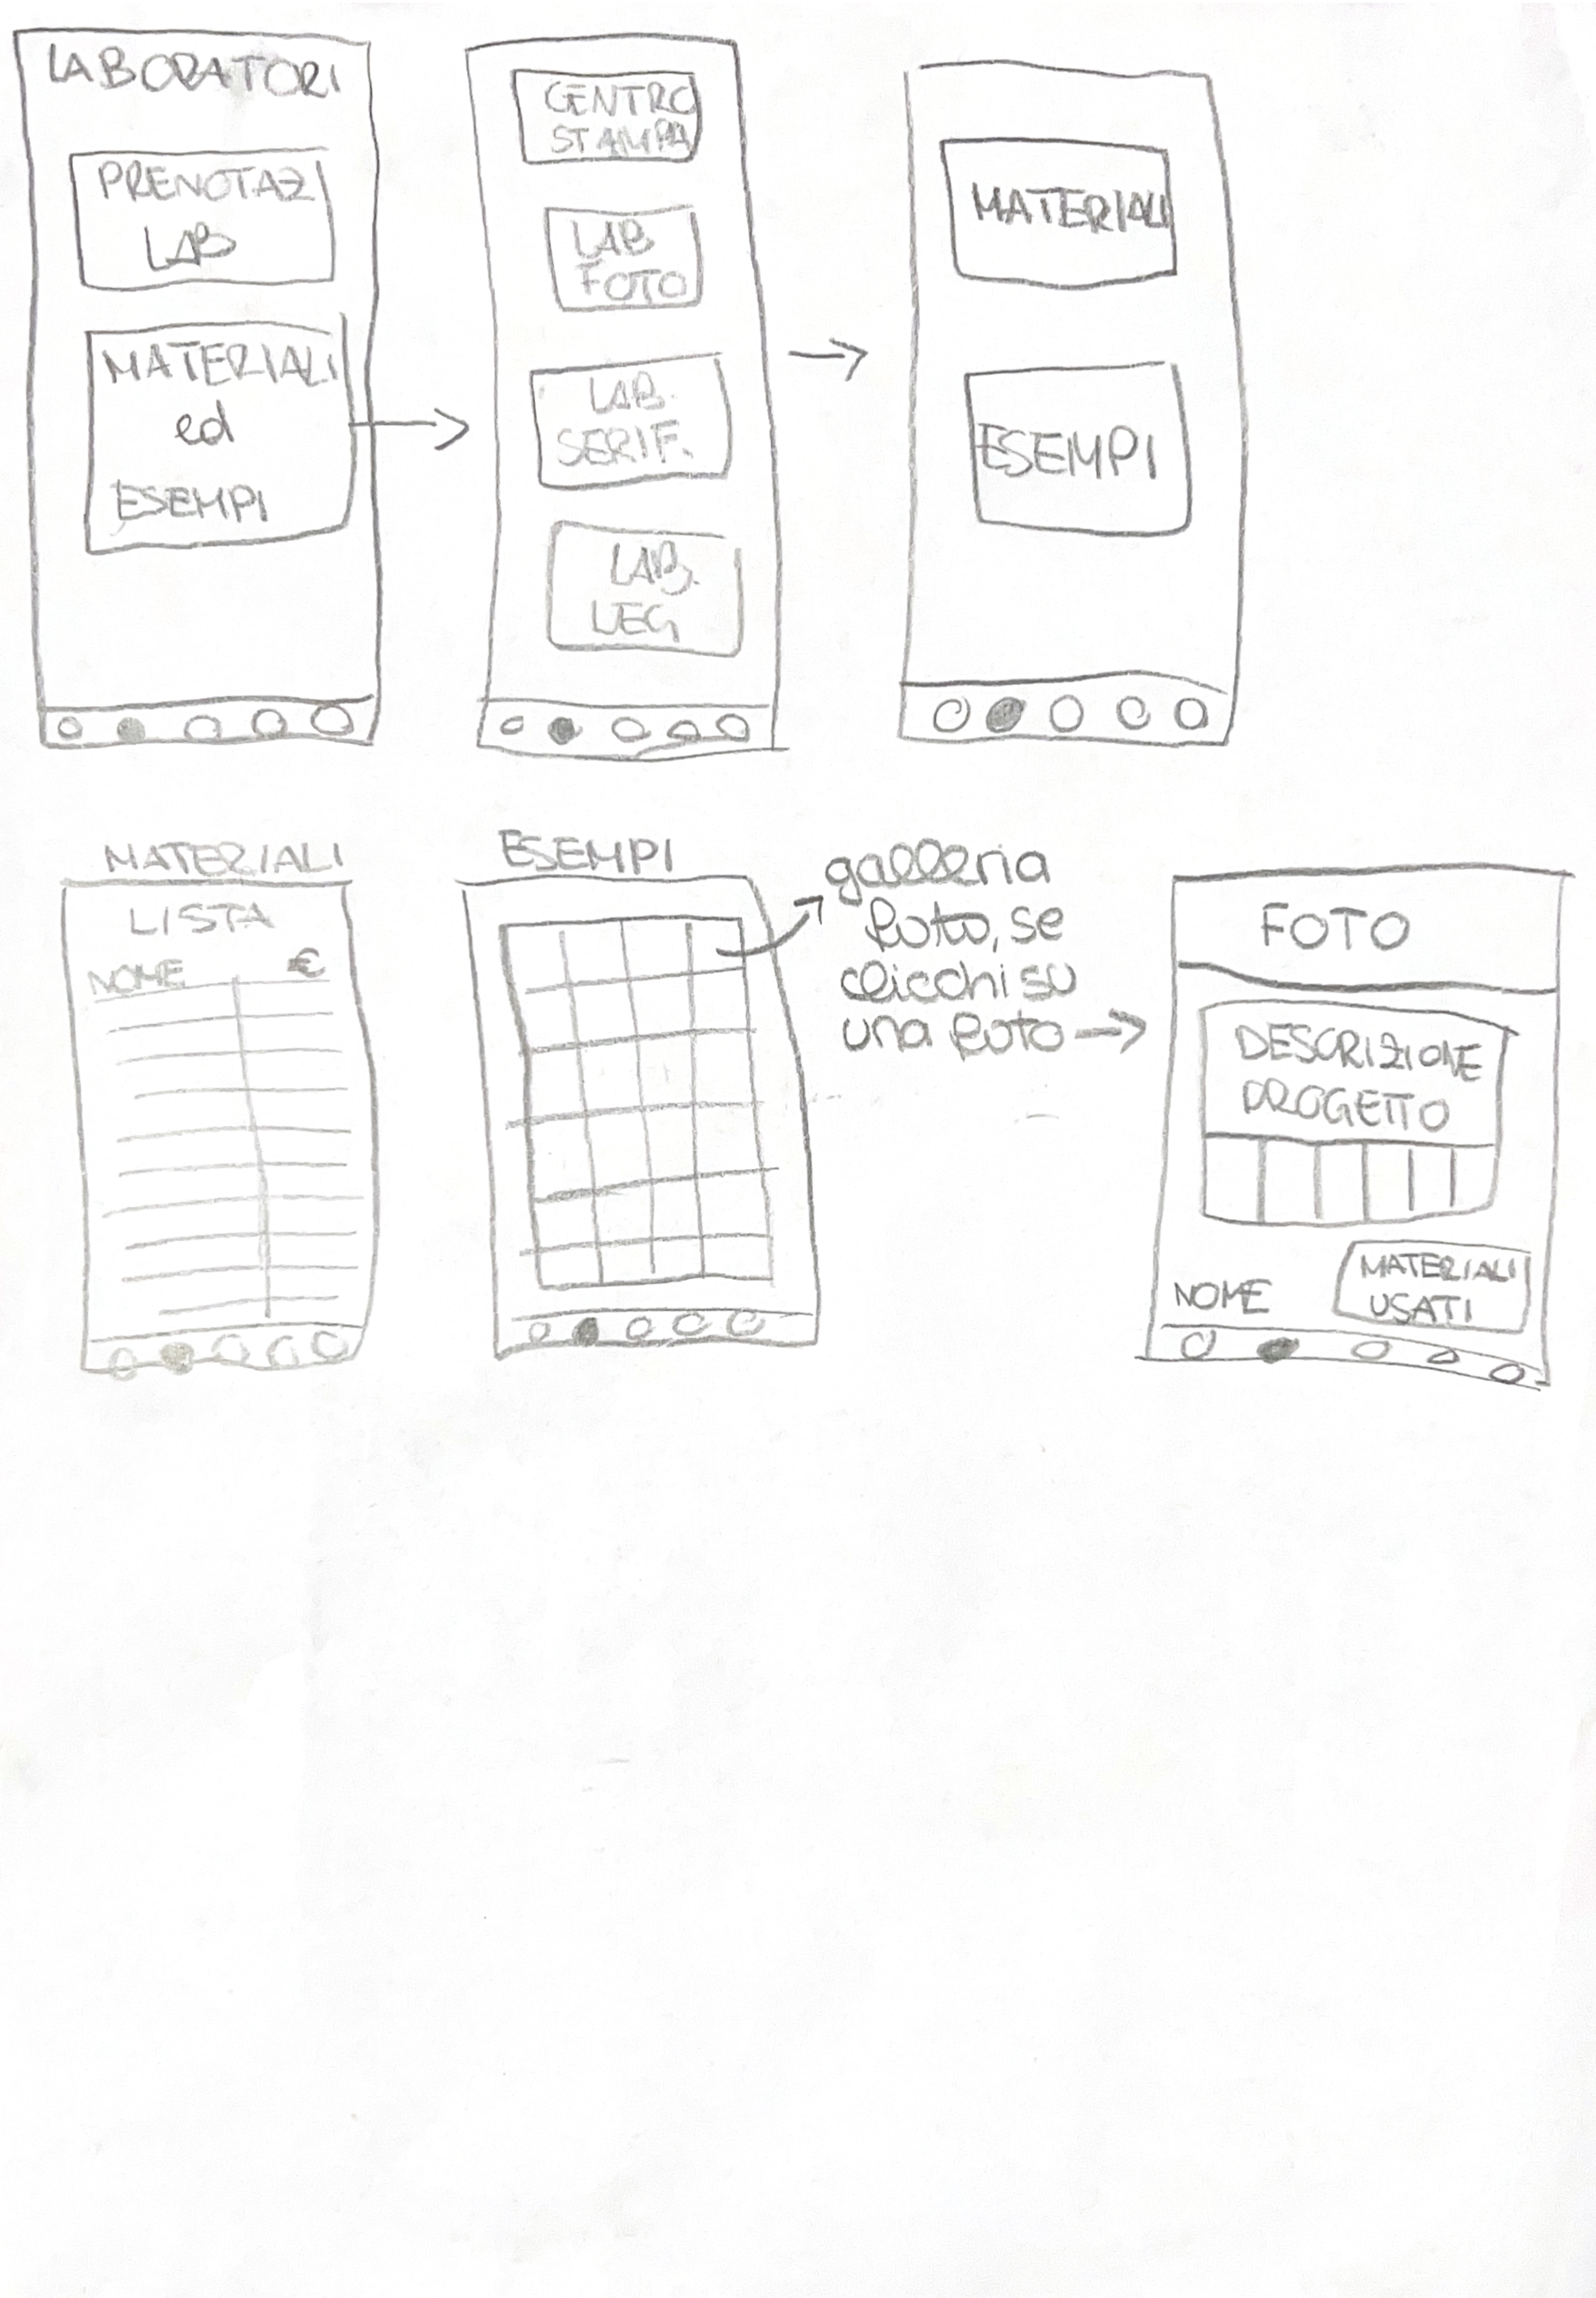 LABORATORI
PRENOTAZ
LAB
MATERIALI
ed
ESEMPI
CENTRO
STAMPA
LAB
FOTO
LAB.
SERIF.
LAB.
LEG
MATERIALI
ESEMPI
MATERIALI
LISTA
NOME €
ESEMPI
galleria
foto, se
clicchi su
una foto
FOTO
DESCRIZIONE
PROGETTO
NOME
MATERIALI
USATI